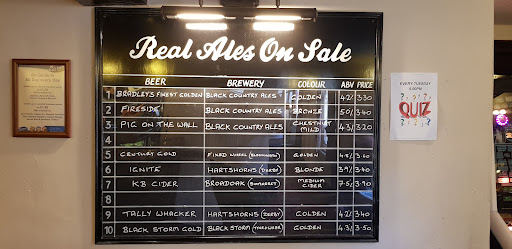 Real Ales On Sale
BEER BREWERY COLOUR ABV PRICE
1 BRADLEYS FINEST GOLDEN BLACK COUNTRY ALES GOLDEN 4.2% 3.30
2 FIRESIDE BLACK COUNTRY ALES BRONZE 5.0% 3.40
3 PIG ON THE WALL BLACK COUNTRY ALES CHESTNUT MILD 4.3% 3.20
4
5 CENTURY GOLD FIXED WHEEL GOLDEN
6 IGNITE HARTSHORNS (DERBY) BLONDE 3.9% 3.40
7 KB CIDER BROADOAK MEDIUM CIDER 7.5% 3.90
8
9 TALLY WHACKER HARTSHORNS (DERBY) GOLDEN 4.2% 3.40
10 BLACK STORM GOLD BLACK STORM GOLDEN 4.3% 3.50
EVERY TUESDAY
QUIZ